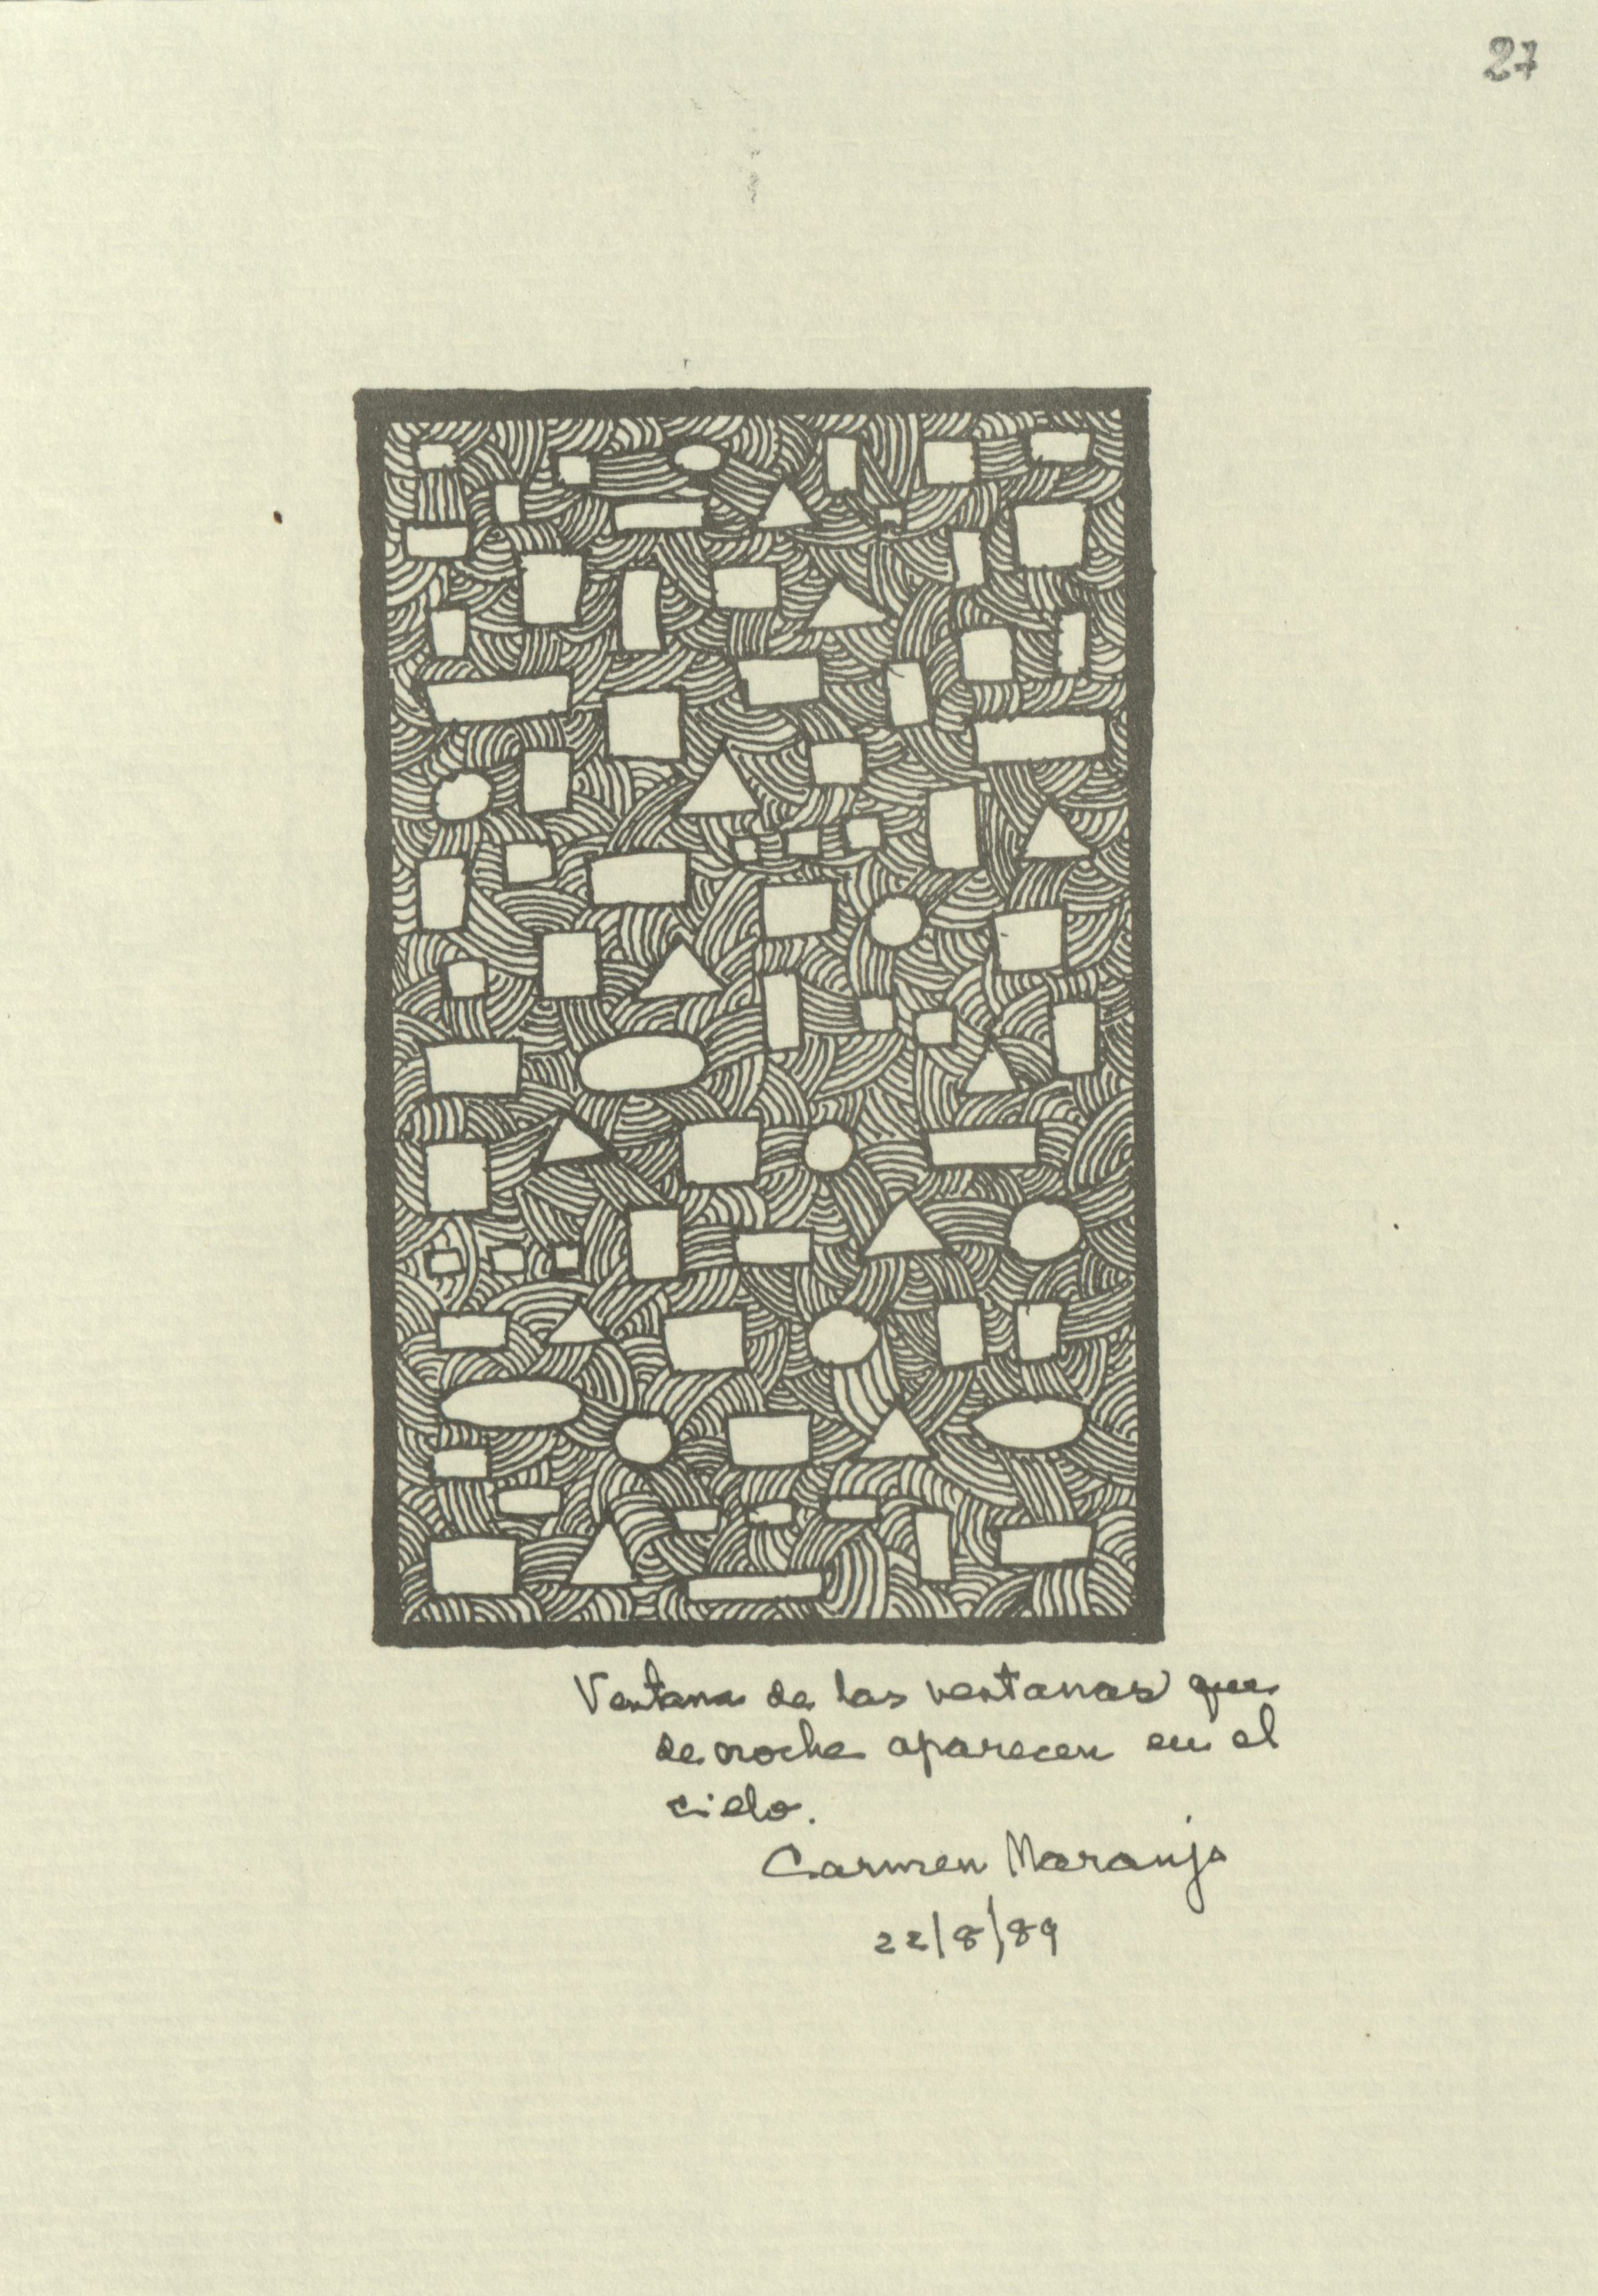 27
Ventana de las ventanas que
de noche aparecen en el
cielo.
Carmen Naranjo
22/8/89